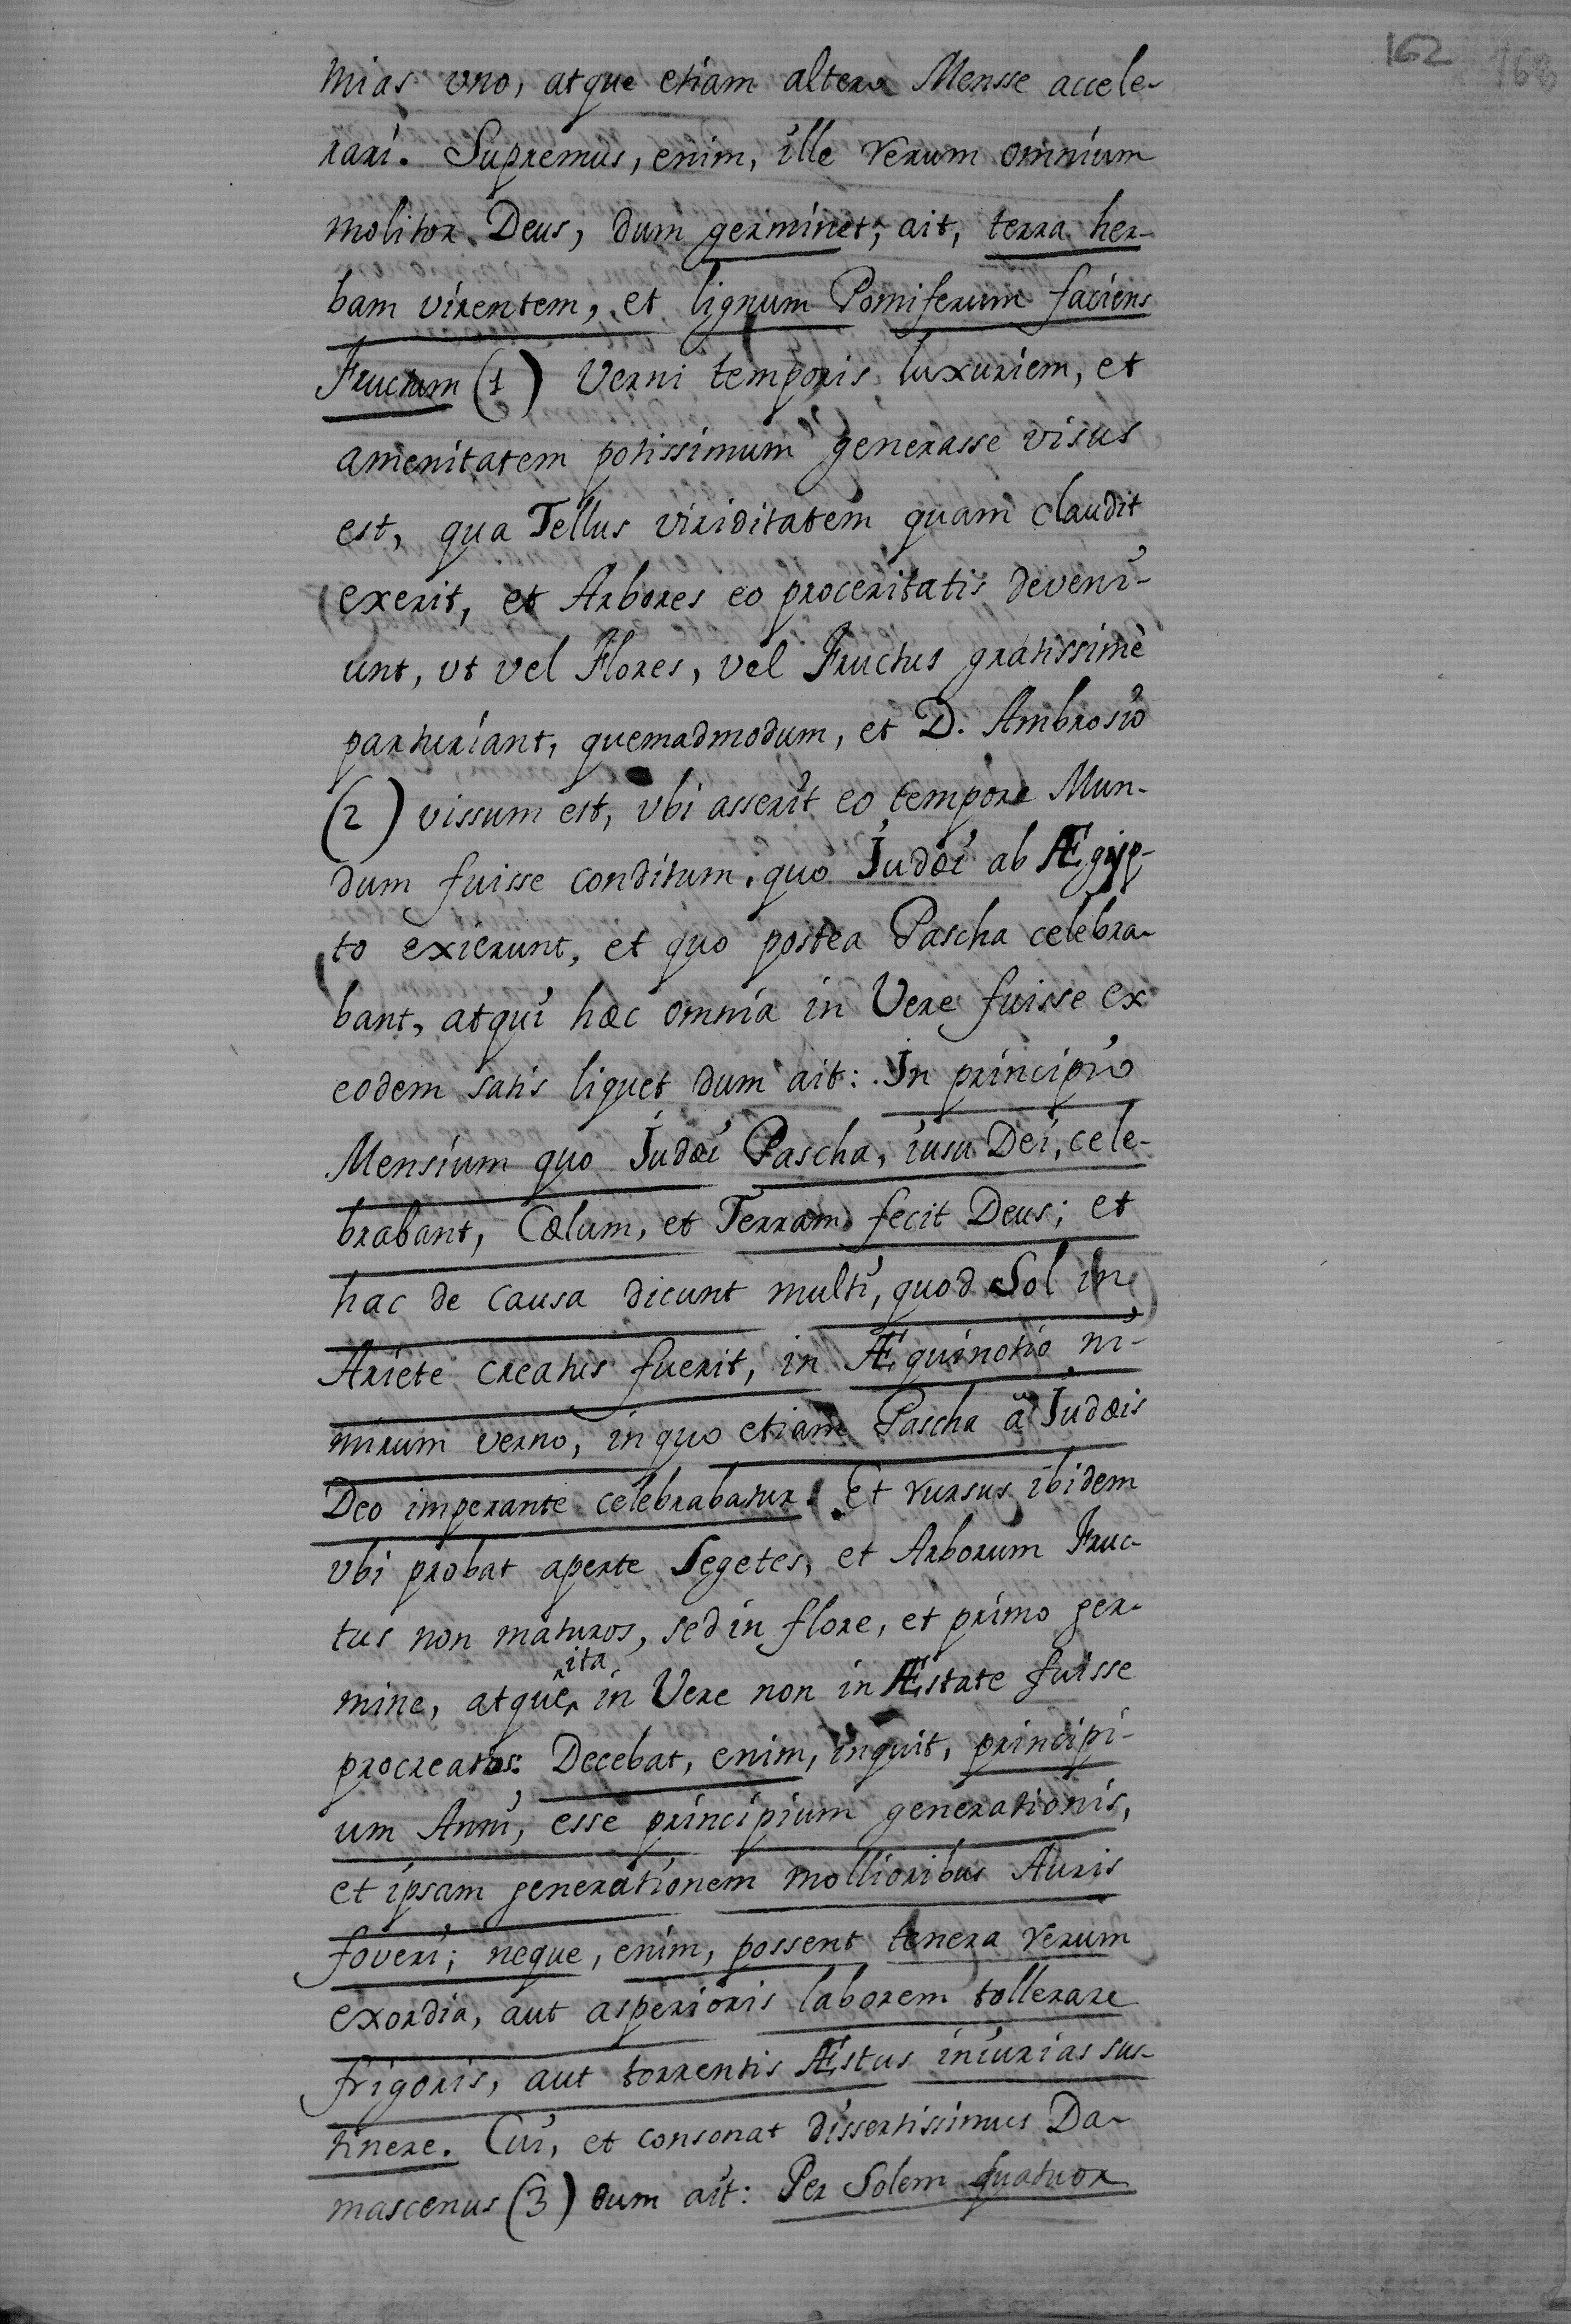 162 168
mias vno, atque etiam altero Mensse accele-
rari. Supremus, enim, ille rerum omnium
molitor Deus, dum germinet, ait, terra her-
bam virentem, et lignum Pomiferum faciens
Fructum (1) Verni temporis luxuriem, et
amenitatem potissimum generasse visus
est, qua Tellus viriditatem quam claudit
exerit, et Arbores eo proceritatis deveni-
unt, vt vel Flores, vel Fructus gratissimè
parturiant, quemadmodum, et D. Ambrosio
(2) vissum est, vbi asserit eo tempore Mun-
dum fuisse conditum, quo Judæi ab Ægyp-
to exierunt, et quo postea Pascha celebra-
bant, atqui hæc omnia in Vere fuisse ex
eodem satis liquet dum ait: In principio
Mensium quo Judæi Pascha, iusu Dei, cele-
brabant, Cælum, et Terram fecit Deus; et
hac de causa dicunt multi, quod Sol in
Ariete creatus fuerit, in Æquinotio ni-
mirum verno, in quo etiam Pascha â Judæis
Deo imperante celebrabatur. Et rursus ibidem
vbi probat aperte Segetes, et Arborum Fruc-
tus non maturos, sed in flore, et primo ger-
mine, atque ita in Vere non in Æstate fuisse
procreatos: Decebat, enim, inquit, principi-
um Anni, esse principium generationis,
et ipsam generationem mollioribus Auris
foveri; neque, enim, possent tenera rerum
exordia, aut asperioris laborem tollerare
frigoris, aut torrentis Æstus iniurias sus-
tinere. Cui, et consonat dissertissimus Da-
mascenus (3) dum ait: Per Solem quatuor